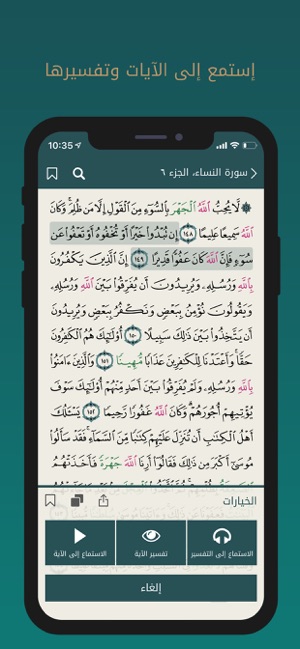 إستمع إلى الآيات وتفسيرها
10:35
سورة النساء، الجزء ٦
۞ لَّا يُحِبُّ ٱللَّهُ ٱلْجَهْرَ بِٱلسُّوٓءِ مِنَ ٱلْقَوْلِ إِلَّا مَن ظُلِمَ وَكَانَ
ٱللَّهُ سَمِيعًا عَلِيمًا ١٤٨ إِن تُبْدُوا۟ خَيْرًا أَوْ تُخْفُوهُ أَوْ تَعْفُوا۟ عَن
سُوٓءٍ فَإِنَّ ٱللَّهَ كَانَ عَفُوًّا قَدِيرًا ١٤٩ إِنَّ ٱلَّذِينَ يَكْفُرُونَ
بِٱللَّهِ وَرُسُلِهِۦ وَيُرِيدُونَ أَن يُفَرِّقُوا۟ بَيْنَ ٱللَّهِ وَرُسُلِهِۦ
وَيَقُولُونَ نُؤْمِنُ بِبَعْضٍ وَنَكْفُرُ بِبَعْضٍ وَيُرِيدُونَ
أَن يَتَّخِذُوا۟ بَيْنَ ذَٰلِكَ سَبِيلًا ١٥٠ أُو۟لَٰٓئِكَ هُمُ ٱلْكَٰفِرُونَ
حَقًّا وَأَعْتَدْنَا لِلْكَٰفِرِينَ عَذَابًا مُّهِينًا ١٥١ وَٱلَّذِينَ ءَامَنُوا۟
بِٱللَّهِ وَرُسُلِهِۦ وَلَمْ يُفَرِّقُوا۟ بَيْنَ أَحَدٍ مِّنْهُمْ أُو۟لَٰٓئِكَ سَوْفَ
يُؤْتِيهِمْ أُجُورَهُمْ وَكَانَ ٱللَّهُ غَفُورًا رَّحِيمًا ١٥٢ يَسْـَٔلُكَ
أَهْلُ ٱلْكِتَٰبِ أَن تُنَزِّلَ عَلَيْهِمْ كِتَٰبًا مِّنَ ٱلسَّمَآءِ فَقَدْ سَأَلُوا۟
مُوسَىٰٓ أَكْبَرَ مِن ذَٰلِكَ فَقَالُوٓا۟ أَرِنَا ٱللَّهَ جَهْرَةً فَأَخَذَتْهُمُ
الخيارات
الاستماع إلى التفسير
تفسير الآية
الاستماع إلى الآية
إلغاء